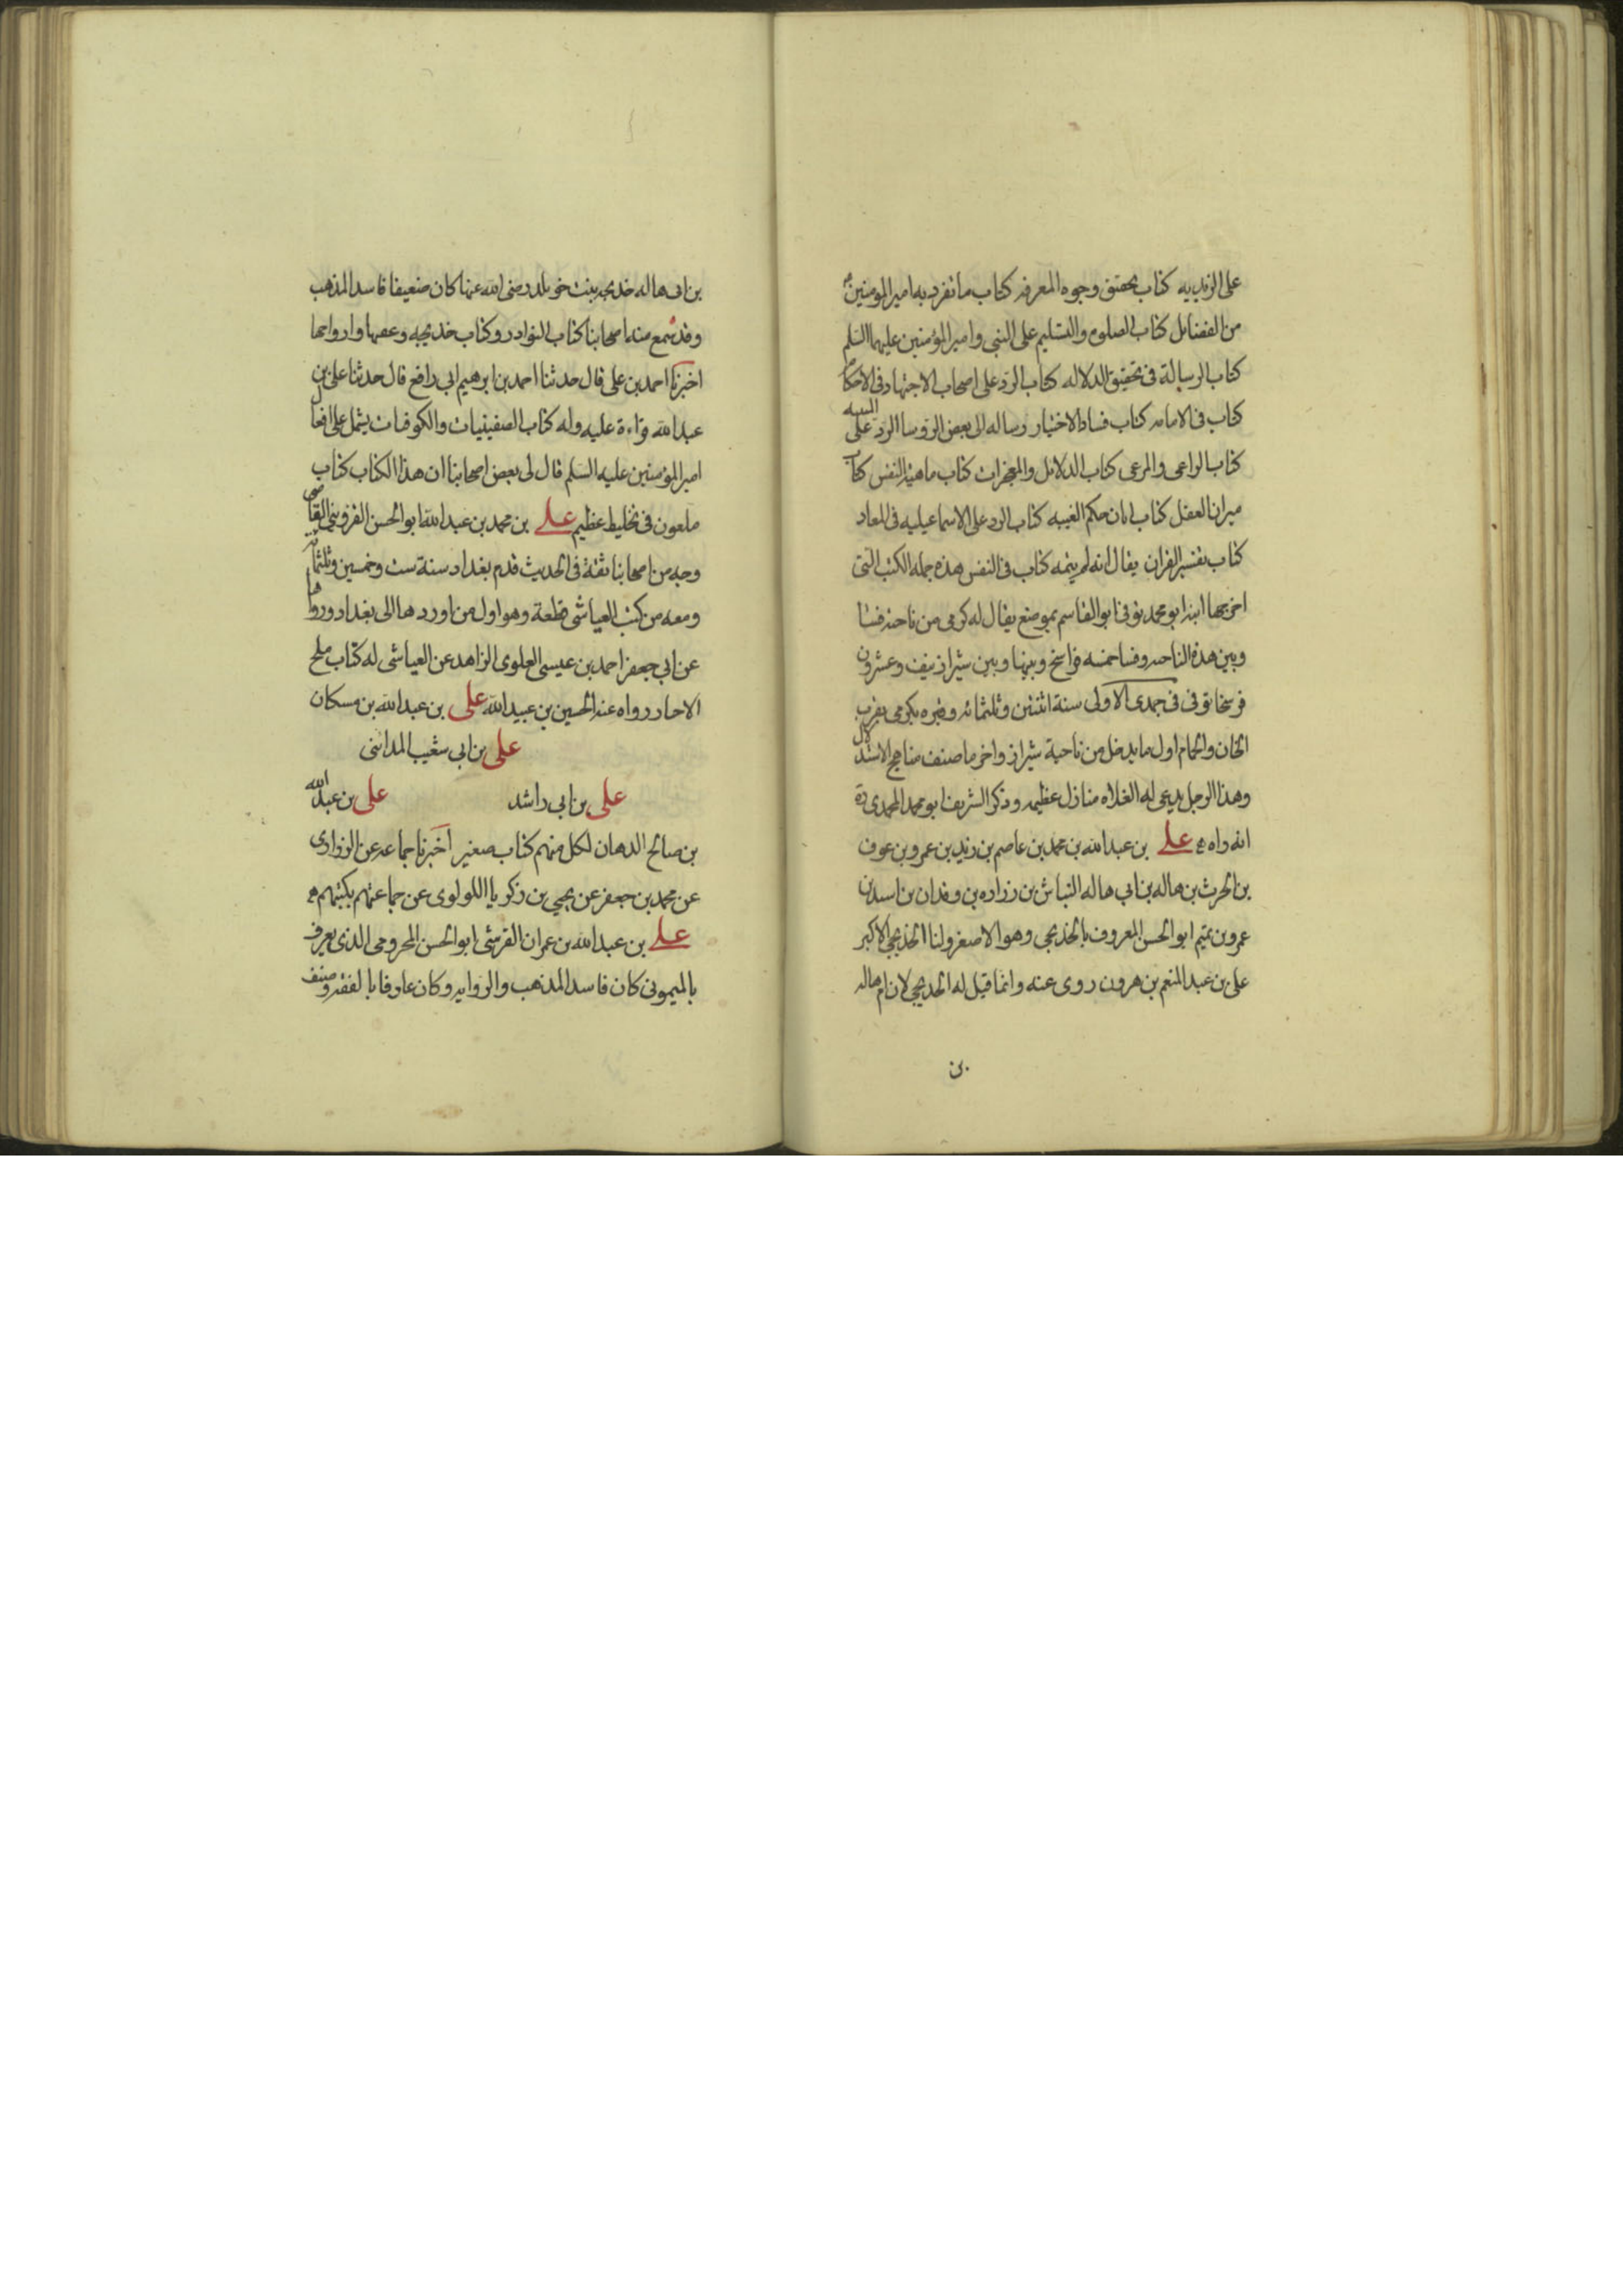 على الزيديه كتاب تحقيق وجوه المعرفه كتاب ما تفرد به امير المومنين
من الفضائل كتاب الصلوه والتسليم على النبى وامير المؤمنين عليهما السلم
كتاب الرسالة فى تحقيق الدلاله كتاب الرد على اصحاب الاجتهاد فى الاحكام
كتاب فى الامامه كتاب فساد الاختيار رساله الى بعض الروسا الرد على
كتاب الراعى والمرعى كتاب الدلائل والمعجزات كتاب ماهية النفس كتاب
ميزان العقل كتاب ابان حكم الغيبه كتاب الرد على الاسماعيليه فى المعاد
كتاب تفسير القران يقال انه لم يتمه كتاب فى النفس هذه جمله الكتب التى
اخرجها ابنه ابو محمد توفى ابو القاسم بموضع يقال له كرمى من ناحيه فسا
وبين هذه الناحيه وفسا خمسه فراسخ وبينها وبين شيراز نيف وعشرون
فرسخا توفى فى جمدى الاولى سنة اثنتين وثلثمائه وقبره بكرمى بقرب
الخان والحمام اول ما يدخل من ناحية شيراز واخر ما صنف مناهج الاستدلال
وهذا الرجل يدعى له الغلاه منازل عظيمه وذكر الشريف ابو محمد المحمدى ره
انه راه على بن عبد الله بن محمد بن عاصم بن زيد بن عمرو بن عوف
بن الحرث بن هاله بن ابى هاله النباش بن زراره بن وقدان بن اسيد بن
عمرو بن تميم ابو الحسن المعروف بالخديجى وهو الاصغر ولنا الخديجى الاكبر
على بن عبد المنعم بن هرون روى عنه وانما قيل له الخديجى لان ام هاله
بن
بن ابى هاله خديجه بنت خويلد رضى الله عنها كان ضعيفا فاسد المذهب
وقد سمع منه اصحابنا كتاب النوادر وكتاب خديجه وعقبها وازواجها
اخبرنا احمد بن على قال حدثنا احمد بن ابرهيم ابى رافع قال حدثنا على بن
عبد الله قراءة عليه وله كتاب الصفينيات والكوفيات يشمل على افعال
امير المؤمنين عليه السلم قال لى بعض اصحابنا ان هذا الكتاب كتاب
ملعون فى تخليط عظيم على بن محمد بن عبد الله ابو الحسن القزوينى القاضى
وجه من اصحابنا ثقة فى الحديث قدم بغداد سنة ست وخمسين وثلثمائه
ومعه من كتب العياشى قطعة وهو اول من اوردها الى بغداد ورواها
عن ابى جعفر احمد بن عيسى العلوى الزاهد عن العياشى له كتاب ملح
الاخبار رواه عنه الحسين بن عبيد الله على بن عبد الله بن مسكان
على بن ابى شعيب المدائنى
على بن ابى راشد على بن عبد الله
بن صالح الدهان لكل منهم كتاب صغير اخبرنا جماعه عن الزرارى
عن محمد بن جعفر عن يحيى بن زكريا اللولوى عن جماعتهم بكتبهم
على بن عبد الله بن عمران القرشى ابو الحسن المخزومى الذى يعرف
بالميمونى كان فاسد المذهب والروايه وكان عارفا بالفقه وصنف